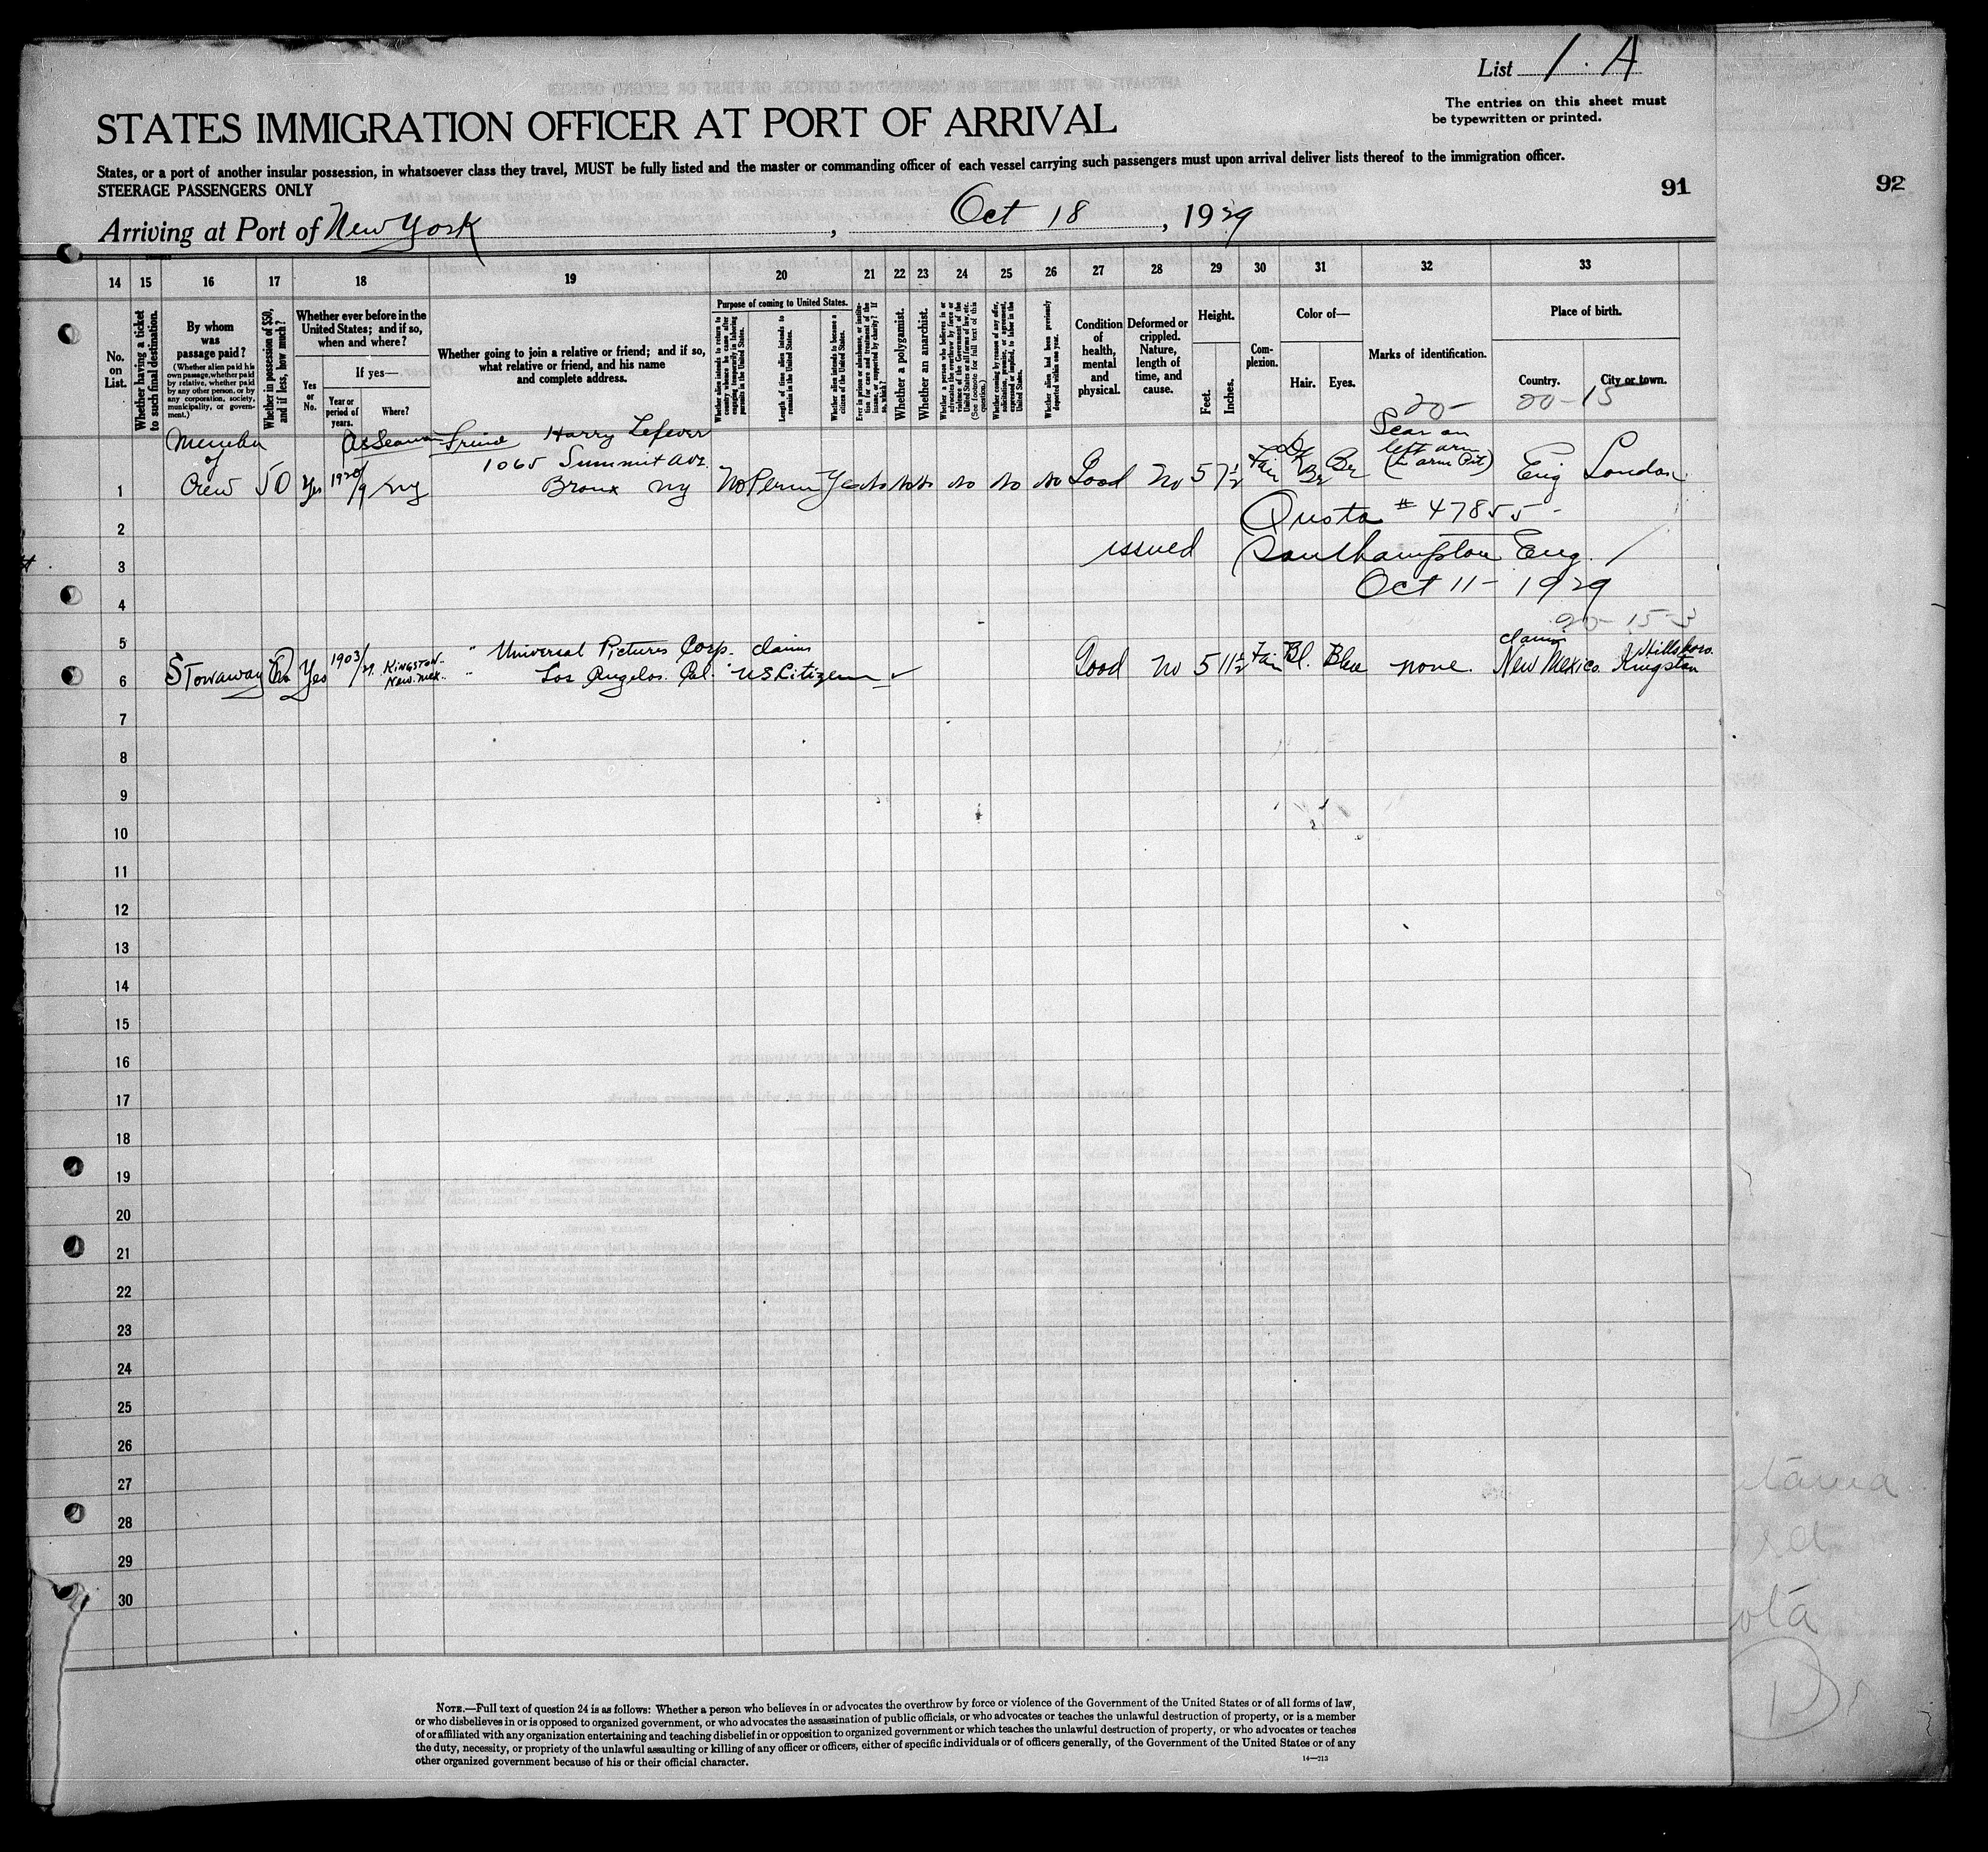 List 1. A
The entries on this sheet must
be typewritten or printed.
STATES IMMIGRATION OFFICER AT PORT OF ARRIVAL
States, or a port of another insular possession, in whatsoever class they travel, MUST be fully listed and the master or commanding officer of each vessel carrying such passengers must upon arrival deliver lists thereof to the immigration officer.
STEERAGE PASSENGERS ONLY
91
92
Arriving at Port of New York, Oct 18, 1929
14 15 16 17 18 19 20 21 22 23 24 25 26 27 28 29 30 31 32 33
No.
on
List.
Whether having a ticket
to such final destination.
By whom
was
passage paid?
(Whether alien paid his
own passage, whether paid
by relative, whether paid
by any other person, or by
any corporation, society,
municipality, or govern-
ment.)
Whether in possession of $50,
and if less, how much?
Whether ever before in the
United States; and if so,
when and where?
Yes
or
No.
If yes—
Year or
period of
years.
Where?
Whether going to join a relative or friend; and if so,
what relative or friend, and his name
and complete address.
Purpose of coming to United States.
Whether alien intends to return to
country whence he came after
engaging temporarily in laboring
pursuits in the United States.
Length of time alien intends to
remain in the United States.
Whether alien intends to become a
citizen of the United States.
Ever in prison or almshouse, or institu-
tion for care and treatment of the
insane, or supported by charity? If
so, which?
Whether a polygamist.
Whether an anarchist.
Whether a person who believes in or
advocates the overthrow by force or
violence of the Government of the
United States or all forms of law, etc.
(See footnote for full text of this
question.)
Whether coming by reason of any offer,
solicitation, promise, or agreement,
expressed or implied, to labor in the
United States.
Whether alien had been previously
deported within one year.
Condition
of
health,
mental
and
physical.
Deformed or
crippled.
Nature,
length of
time, and
cause.
Height.
Feet.
Inches.
Com-
plexion.
Color of—
Hair.
Eyes.
Marks of identification.
Place of birth.
Country.
City or town.
20-
20-15
Member
of
Crew
As Seaman
Friend Harry Lefever
1065 Summit Ave.
Bronx NY
1 50 Yes 1920/9 NY No Perm Yes No No No No No No Good No 5 7½ Fair Dk Br Br
Scar on
left arm
(in arm Pit)
Eng London
2 Quota # 47855-
3 issued Southampton Eng.
4 Oct 11- 1929
20-15-3
5 " Universal Pictures Corp. claims
claims Hillsboro.
6 Stowaway No Yes 1903/29. Kingston. New Mex. " Los Angelos. Cal. US Citizen Good No 5 11½ Fair Bl. Blue none. New Mexico. Kingston
7
8
9
10
11
12
13
14
15
16
17
18
19
20
21
22
23
24
25
26
27
28
29
30
NOTE.—Full text of question 24 is as follows: Whether a person who believes in or advocates the overthrow by force or violence of the Government of the United States or of all forms of law,
or who disbelieves in or is opposed to organized government, or who advocates the assassination of public officials, or who advocates or teaches the unlawful destruction of property, or is a member
of or affiliated with any organization entertaining and teaching disbelief in or opposition to organized government or which teaches the unlawful destruction of property, or who advocates or teaches
the duty, necessity, or propriety of the unlawful assaulting or killing of any officer or officers, either of specific individuals or of officers generally, of the Government of the United States or of any
other organized government because of his or their official character.
14—213